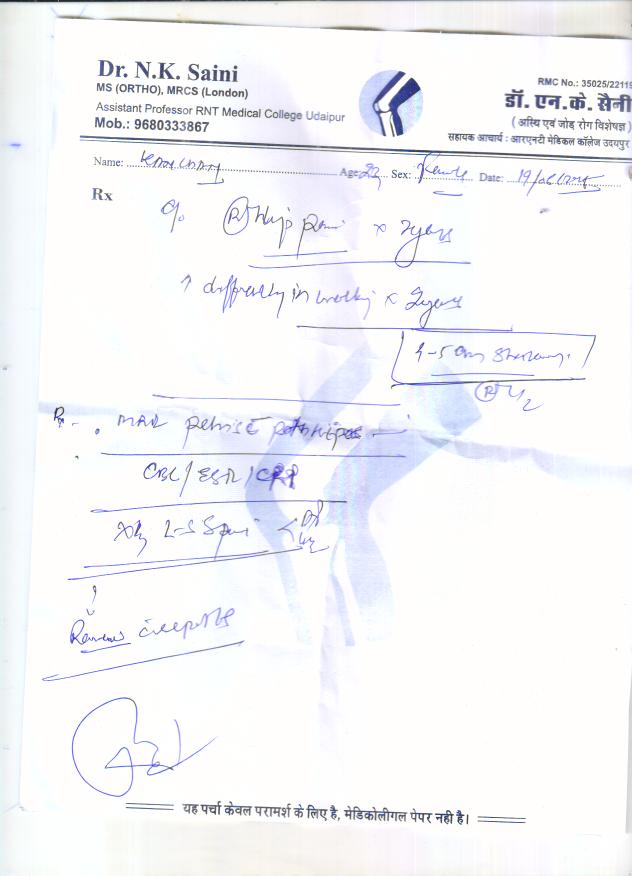 Dr. N.K. Saini
MS (ORTHO), MRCS (London)
Assistant Professor RNT Medical College Udaipur
Mob.: 9680333867
RMC No.: 35025/22119
डॉ. एन.के. सैनी
( अस्थि एवं जोड़ रोग विशेषज्ञ )
सहायक आचार्य : आरएनटी मेडिकल कॉलेज उदयपुर
Name: Age: Sex: Female Date: 19/
Rx
c/o (R) Hip pain x 2years
↑ difficulty in walking x 2years
4-5 cm Shortening
(R) L/L
Rx
MRI pelvis c both hips
CBC/ESR/CRP
Xray L-S Spine <AP Lat
↓
Review c reports
यह पर्चा केवल परामर्श के लिए है, मेडिकोलीगल पेपर नही है।